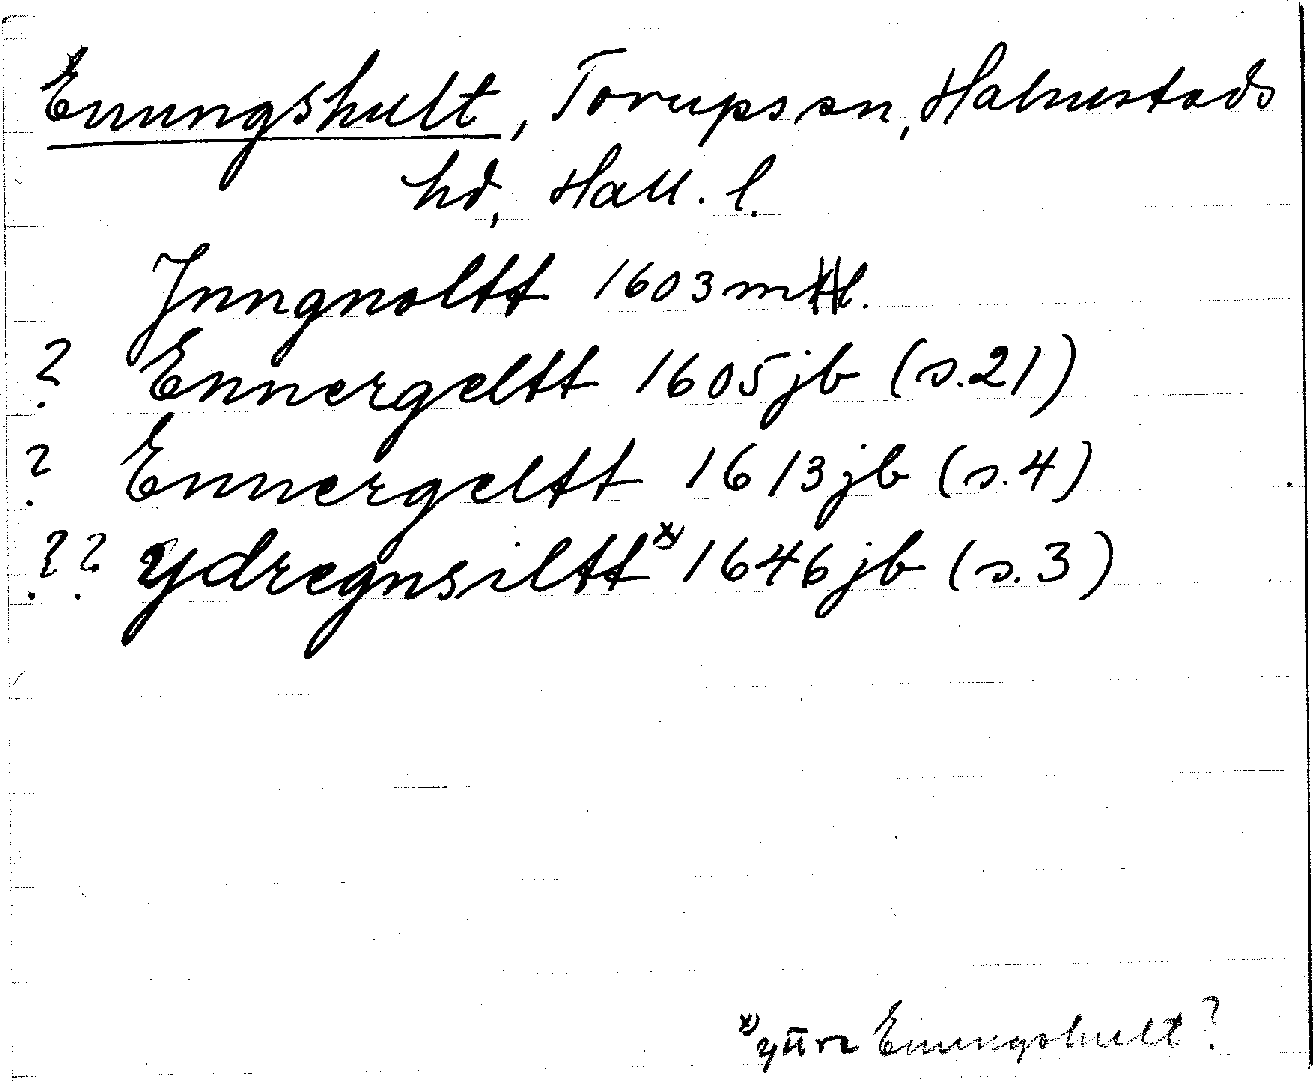 Enungshult, Torups sn, Halmstads
hd, Hall. l.
Jnngnoltt 1603 mtl.
? Ennergeltt 1605 jb (s.21)
? Ennergeltt 1613 jb (s.4)
?? Ydregnsiltt x) 1646 jb (s.3)
x) Enungshult?